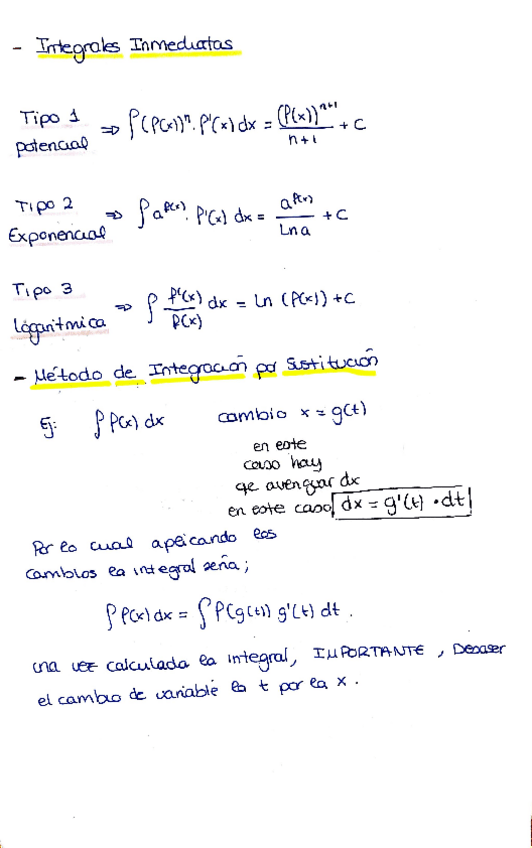 - Integrales Inmediatas
Tipo 1
potencial
⇒ ∫(f(x))ⁿ · f'(x) dx = (f(x))ⁿ⁺¹ / n+1 + C
Tipo 2
Exponencial
⇒ ∫ a^f(x) · f'(x) dx = a^f(x) / Ln a + C
Tipo 3
Logaritmica
⇒ ∫ f'(x) / f(x) dx = Ln (f(x)) + C
- Método de Integración por Sustitución
Ej: ∫ f(x) dx cambio x = g(t)
en este
caso hay
que averiguar dx
en este caso dx = g'(t) · dt
Por lo cual aplicando los
cambios la integral seria;
∫ f(x) dx = ∫ f(g(t)) g'(t) dt .
una vez calculada la integral, IMPORTANTE, Deshaser
el cambio de variable la t por la x .